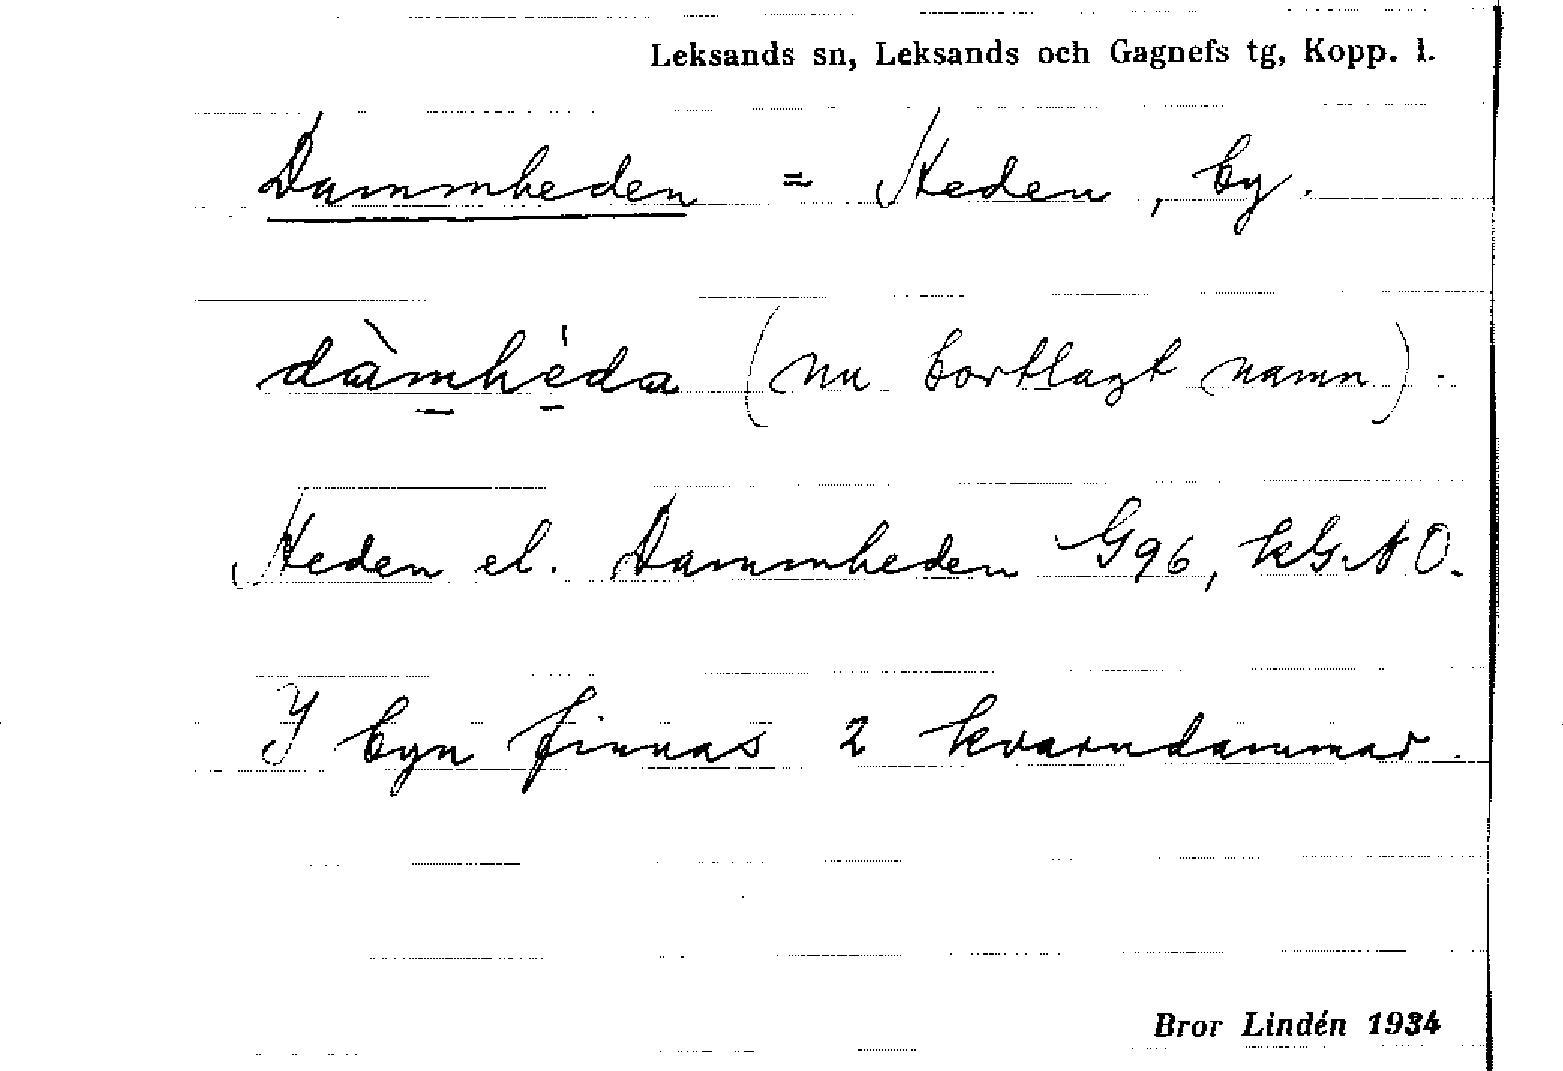 Leksands sn, Leksands och Gagnefs tg, Kopp. l.
Dammheden = Heden, by.
dàmhèda (nu bortlagt namn).
Heden el. Dammheden G96, kG.NO.
I byn finnas 2 kvarndammar.
Bror Lindén 1934